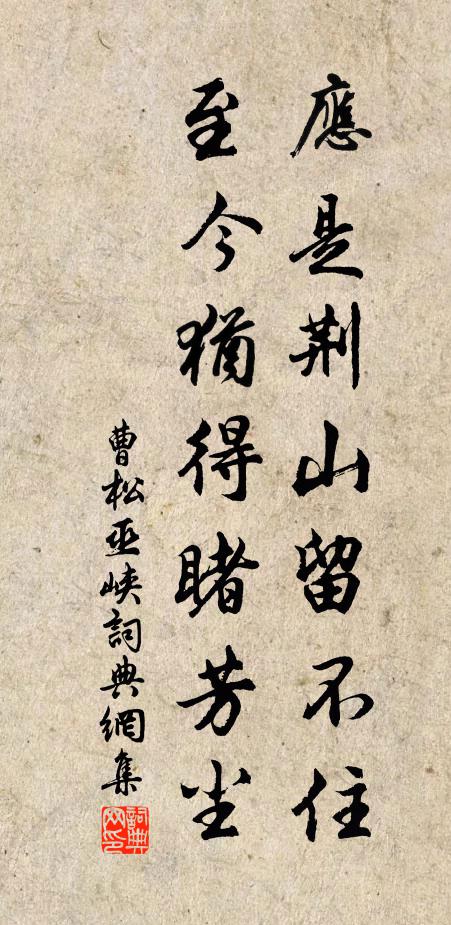 應是荆山留不住
至今猶得睹芳尘
曹松巫峽詞典網集
詞典
网印